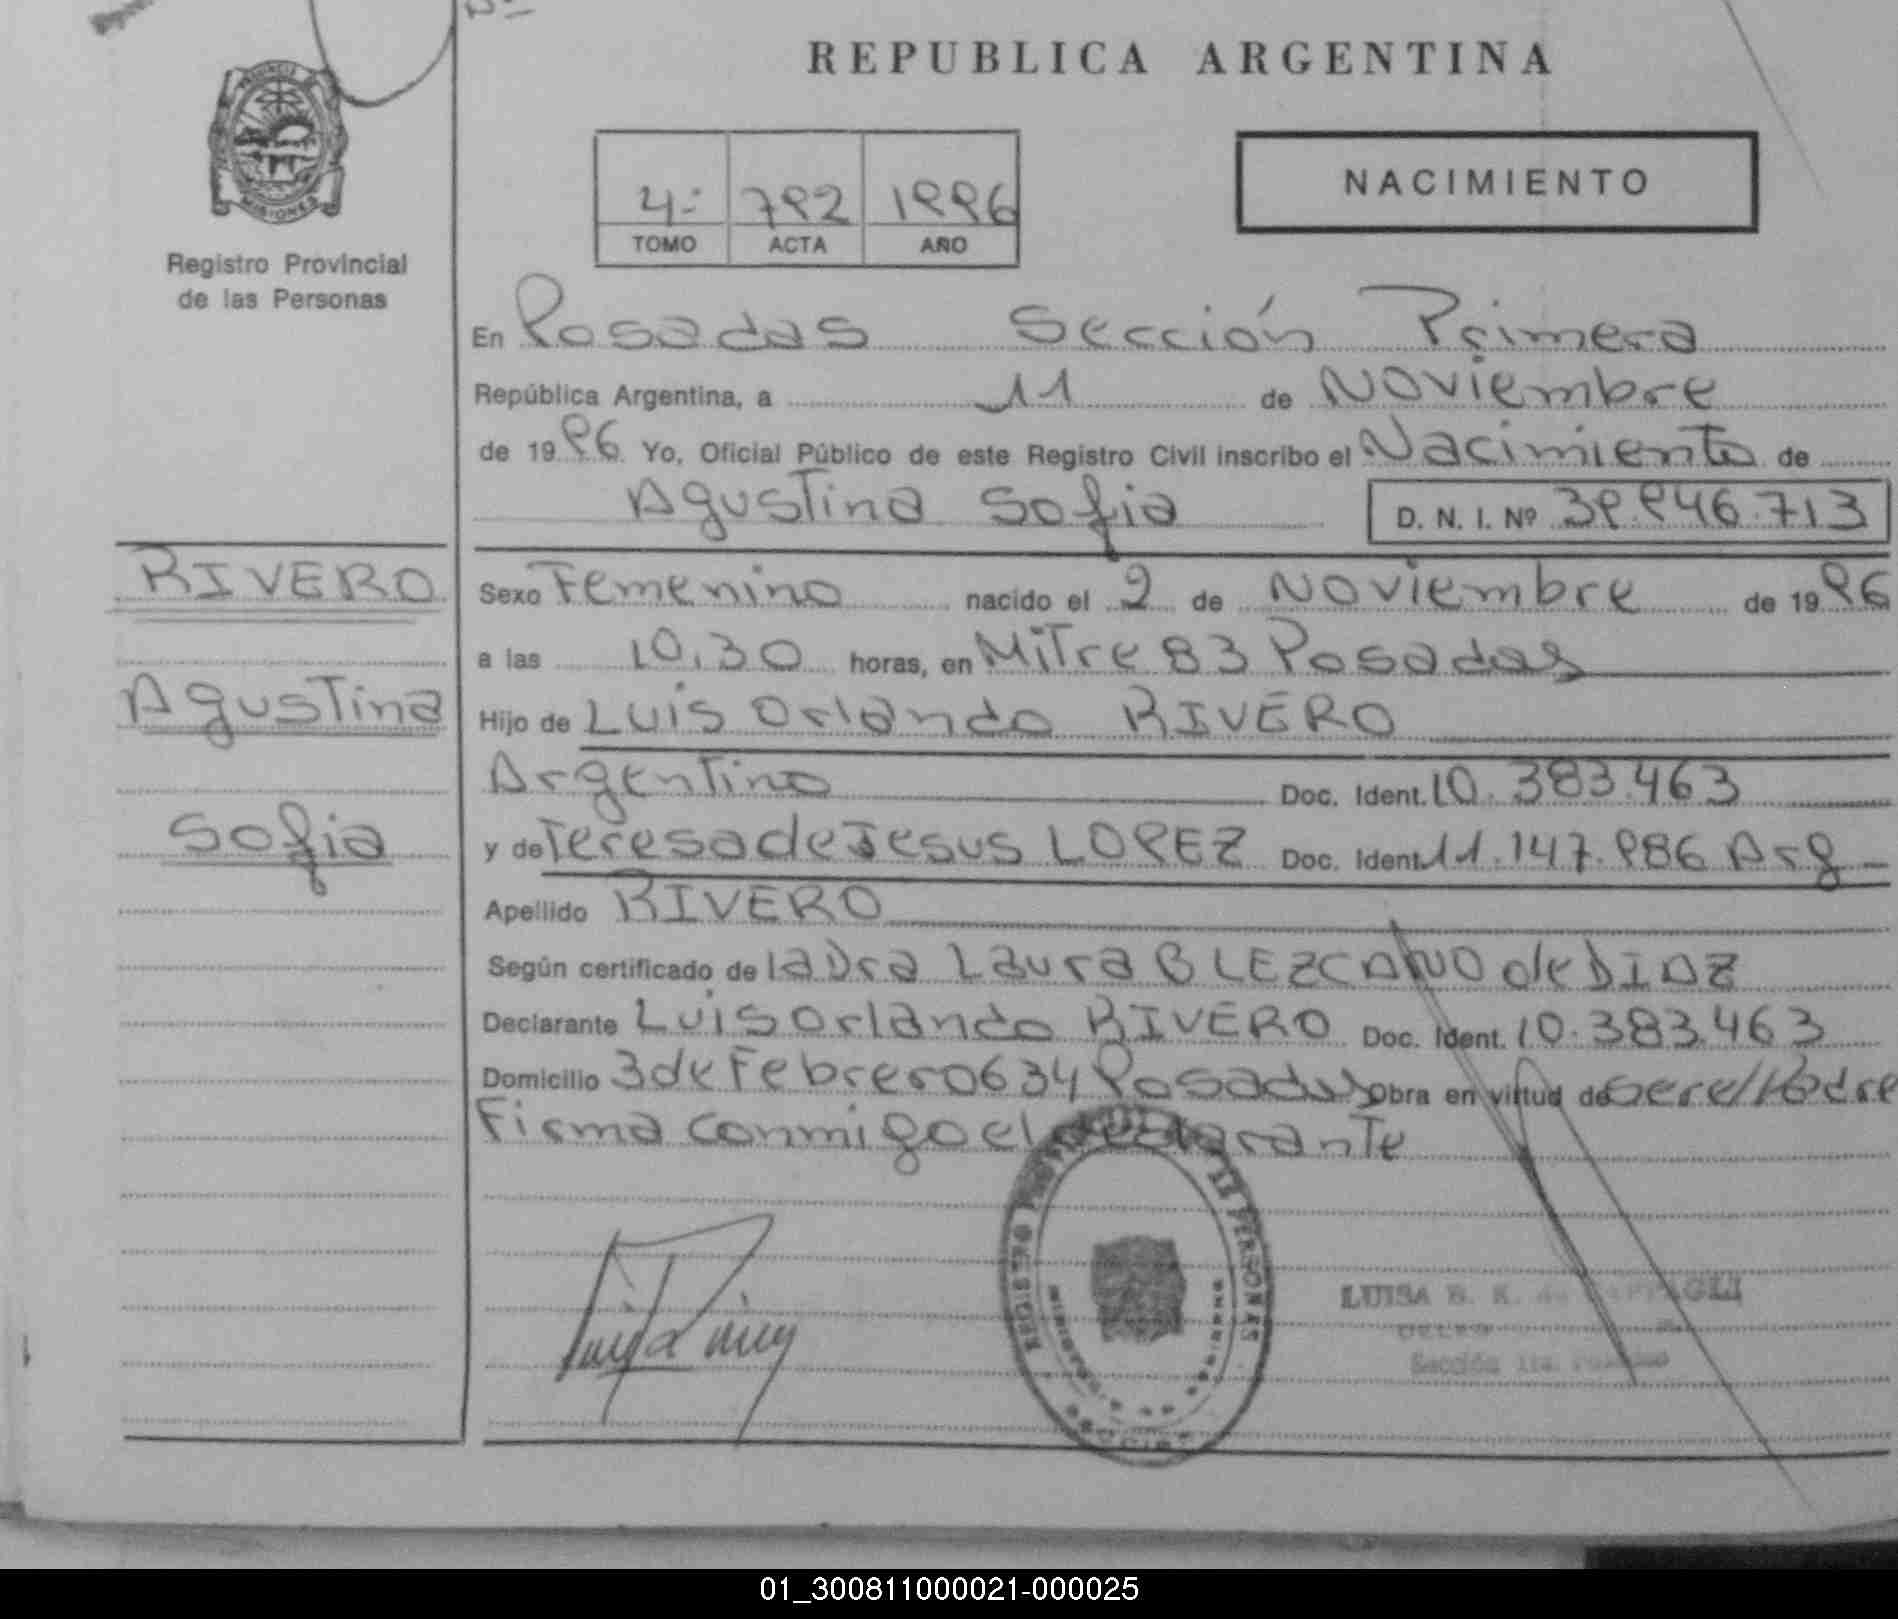 Nº
REPUBLICA ARGENTINA
PROVINCIA
MISIONES
NACIMIENTO
4º 792 1996
TOMO ACTA AÑO
Registro Provincial
de las Personas
En Posadas Sección Primera
República Argentina, a 11 de Noviembre
de 1996 Yo, Oficial Público de este Registro Civil inscribo el Nacimiento de
Agustina Sofia D. N. I. Nº 39.946.713
RIVERO
Agustina
Sofia
Sexo Femenino nacido el 2 de Noviembre de 1996
a las 10,30 horas, en Mitre 83 Posadas
Hijo de Luis Orlando RIVERO
Argentino Doc. Ident. 10.383.463
y de Teresa de Jesus LOPEZ Doc. Ident. 11.147.986 Arg
Apellido RIVERO
Según certificado de la Dra Laura B LEZCANO de DIAZ
Declarante Luis Orlando RIVERO Doc. Ident. 10.383.463
Domicilio 3 de Febrero 634 Posadas Obra en virtud de ser el Padre
Firma conmigo el declarante
REGISTRO PERSONAS
LUISA B. K. de
Sección 1ra. Posadas
01_300811000021-000025